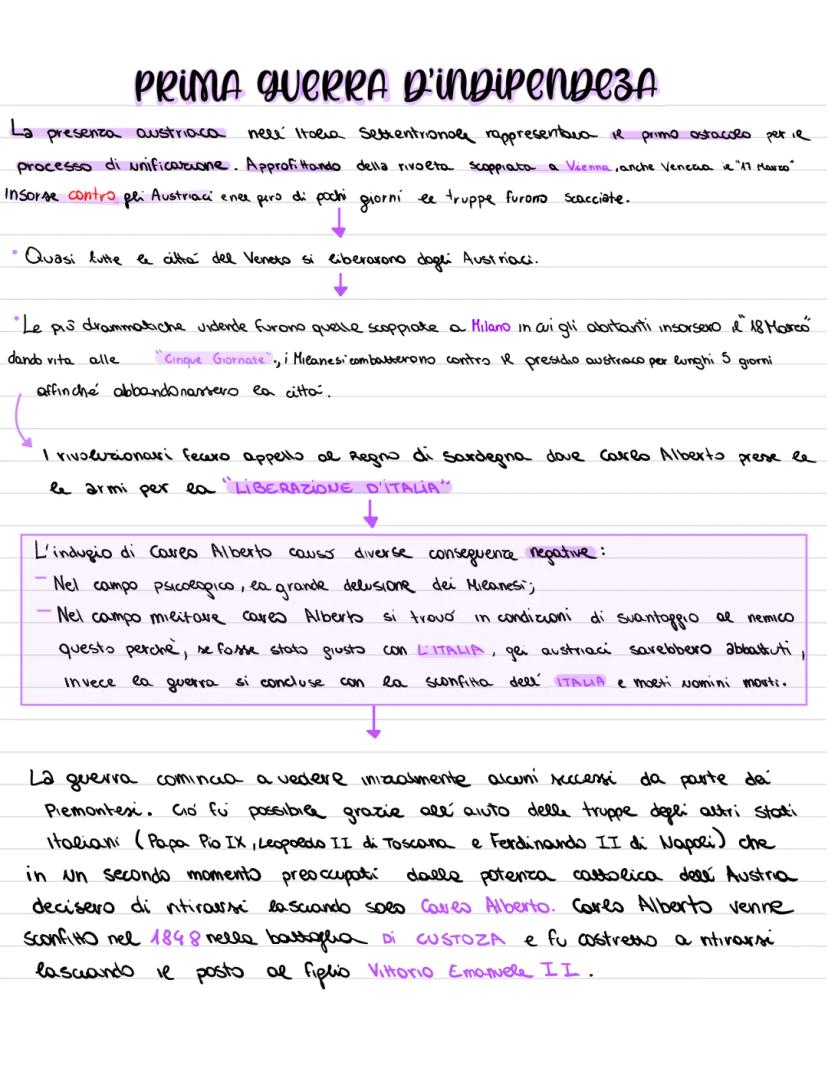 PRIMA GUERRA D'INDIPENDEZA
La presenza austriaca nell' Italia Settentrionale rappresentava il primo ostacolo per il
processo di unificazione. Approfittando della rivolta scoppiata a Vienna, anche Venezia il "17 Marzo"
insorse contro gli Austriaci e nel giro di pochi giorni le truppe furono scacciate.
• Quasi tutte le città del Veneto si liberarono dagli Austriaci.
• Le più drammatiche vidende furono quelle scoppiate a Milano in cui gli abitanti insorsero il "18 Marzo"
dando vita alle "Cinque Giornate", i Milanesi combatterono contro il presidio austriaco per lunghi 5 giorni
affinché abbandonassero la città.
I rivoluzionari fecero appello al Regno di Sardegna dove Carlo Alberto prese le
le armi per la "LIBERAZIONE D'ITALIA"
L'indugio di Carlo Alberto causò diverse conseguenze negative:
- Nel campo psicologico, la grande delusione dei Milanesi;
- Nel campo militare Carlo Alberto si trovò in condizioni di svantaggio al nemico
questo perchè, se fosse stato giusto con L'ITALIA, gli austriaci sarebbero abbattuti,
invece la guerra si concluse con la sconfitta dell' ITALIA e molti uomini morti.
La guerra comincia a vedere inizialmente alcuni successi da parte dei
Piemontesi. Ciò fu possibile grazie all' aiuto delle truppe degli altri stati
italiani (Papa Pio IX, Leopoldo II di Toscana e Ferdinando II di Napoli) che
in un secondo momento preoccupati dalla potenza cattolica dell' Austria
decisero di ritirarsi lasciando solo Carlo Alberto. Carlo Alberto venne
sconfitto nel 1848 nella battaglia DI CUSTOZA e fu costretto a ritirarsi
lasciando il posto al figlio Vittorio Emanuele II.